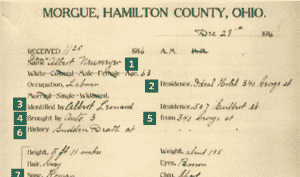 MORGUE, HAMILTON COUNTY, OHIO.
Dec 28th 1916
RECEIVED 1125 1916 A. M.
Name Albert 1
White-Colored-Male-Female-Age 63
Occupation, Labour 2 Residence, Hotel 340 George st
Married-Single-Widowed,
3 Identified by Albert Leonard Residence, 507 st
4 Brought by Auto 3 5 from 340 George st
6 History Sudden Death at
Height, 5 ft 11 inches Weight, about 145
Hair, Gray Eyes, Brown
7 Nose, Roman Chin,